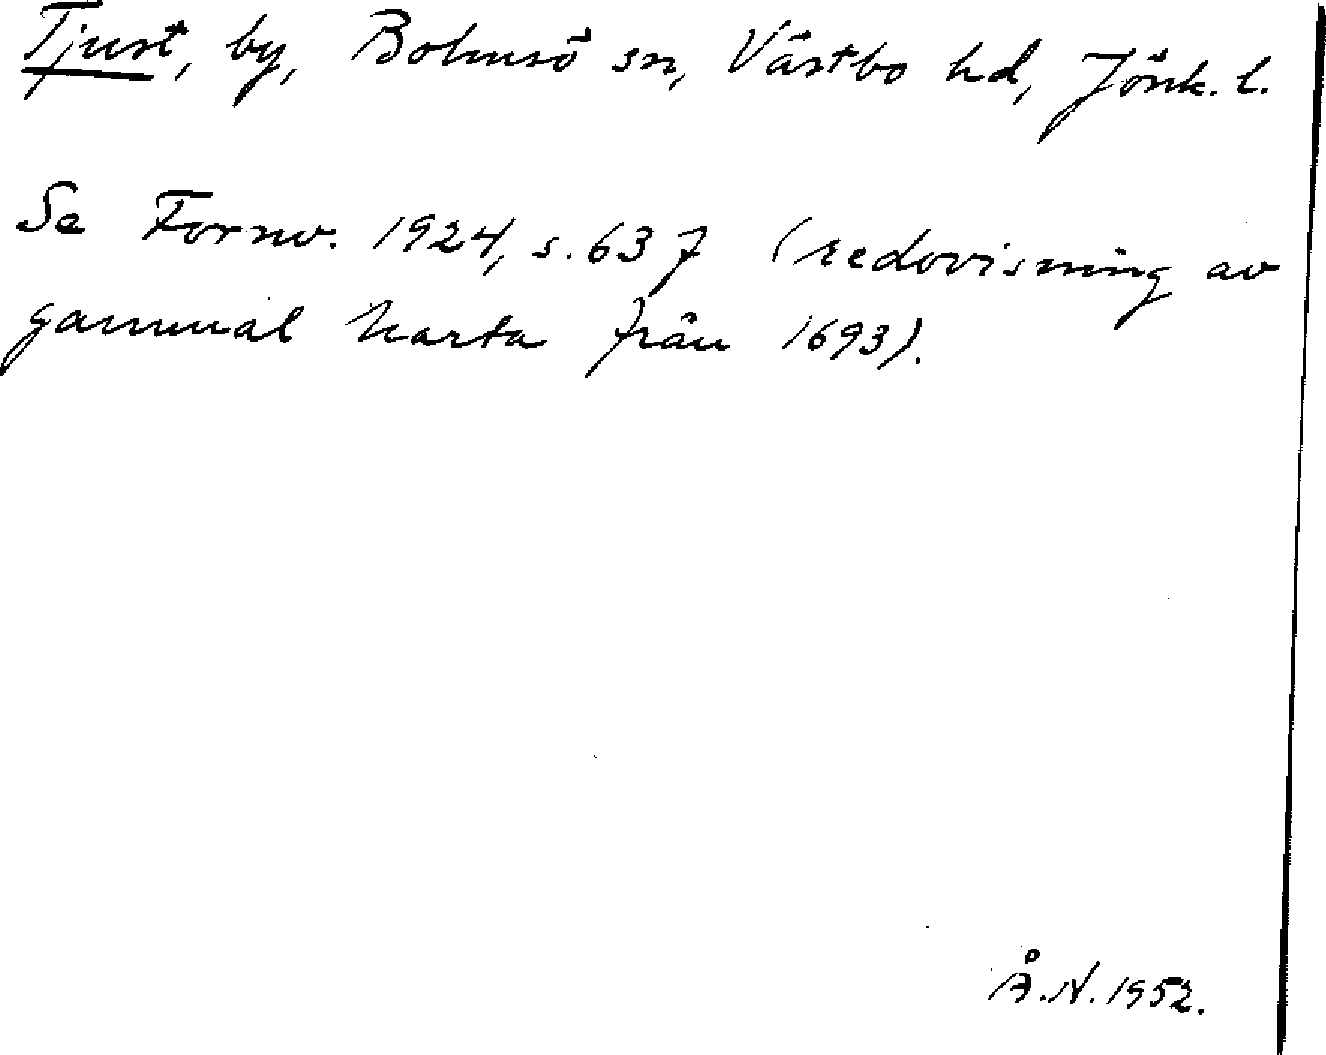 Tjust, by, Bolmsö sn, Västbo hd, Jönk. l.
Se Fornv. 1924, s. 63 f (redovisning av
gammal karta från 1693).
Å.N. 1952.